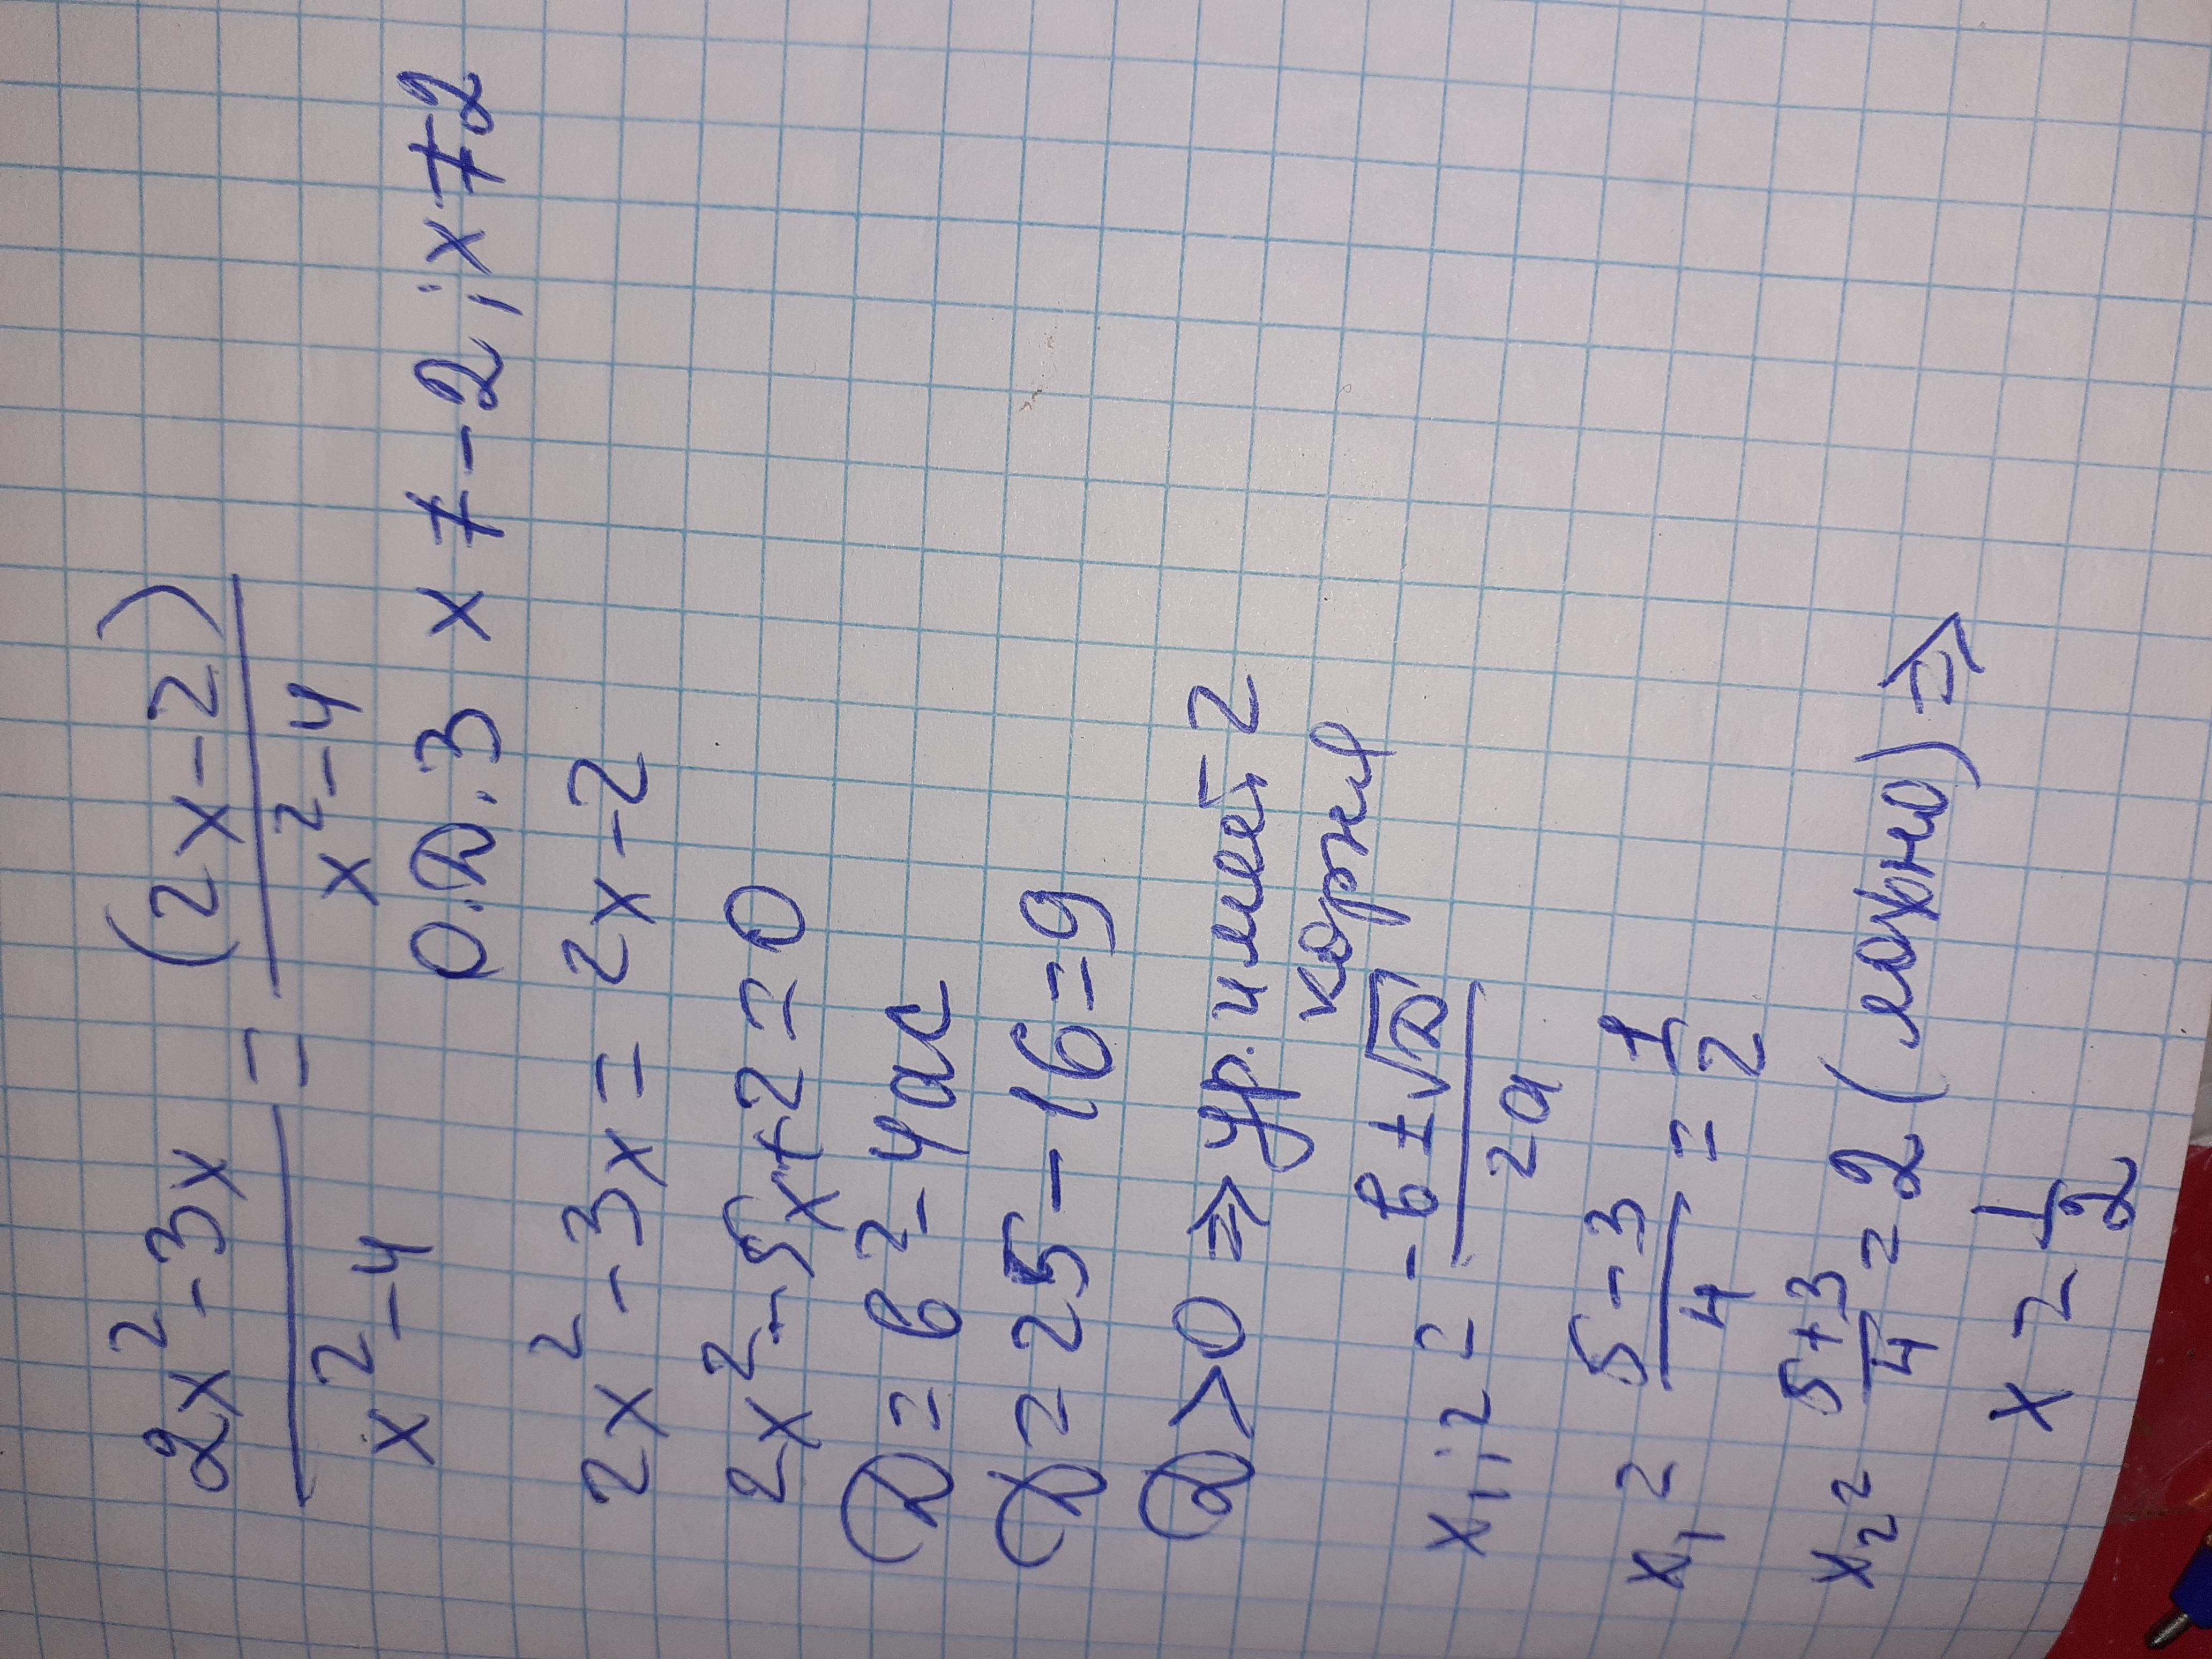 (2x² - 3x)/(x² - 4) = (2x - 2)/(x² - 4)
О.Д.З x ≠ -2; x ≠ 2
2x² - 3x = 2x - 2
2x² - 5x + 2 = 0
D = b² - 4ac
D = 25 - 16 = 9
D > 0 => ур. имеет 2
корня
x₁;₂ = (-b ± √D)/2a
x₁ = (5 - 3)/4 = 1/2
x₂ = (5 + 3)/4 = 2 (ложно) =>
x = 1/2